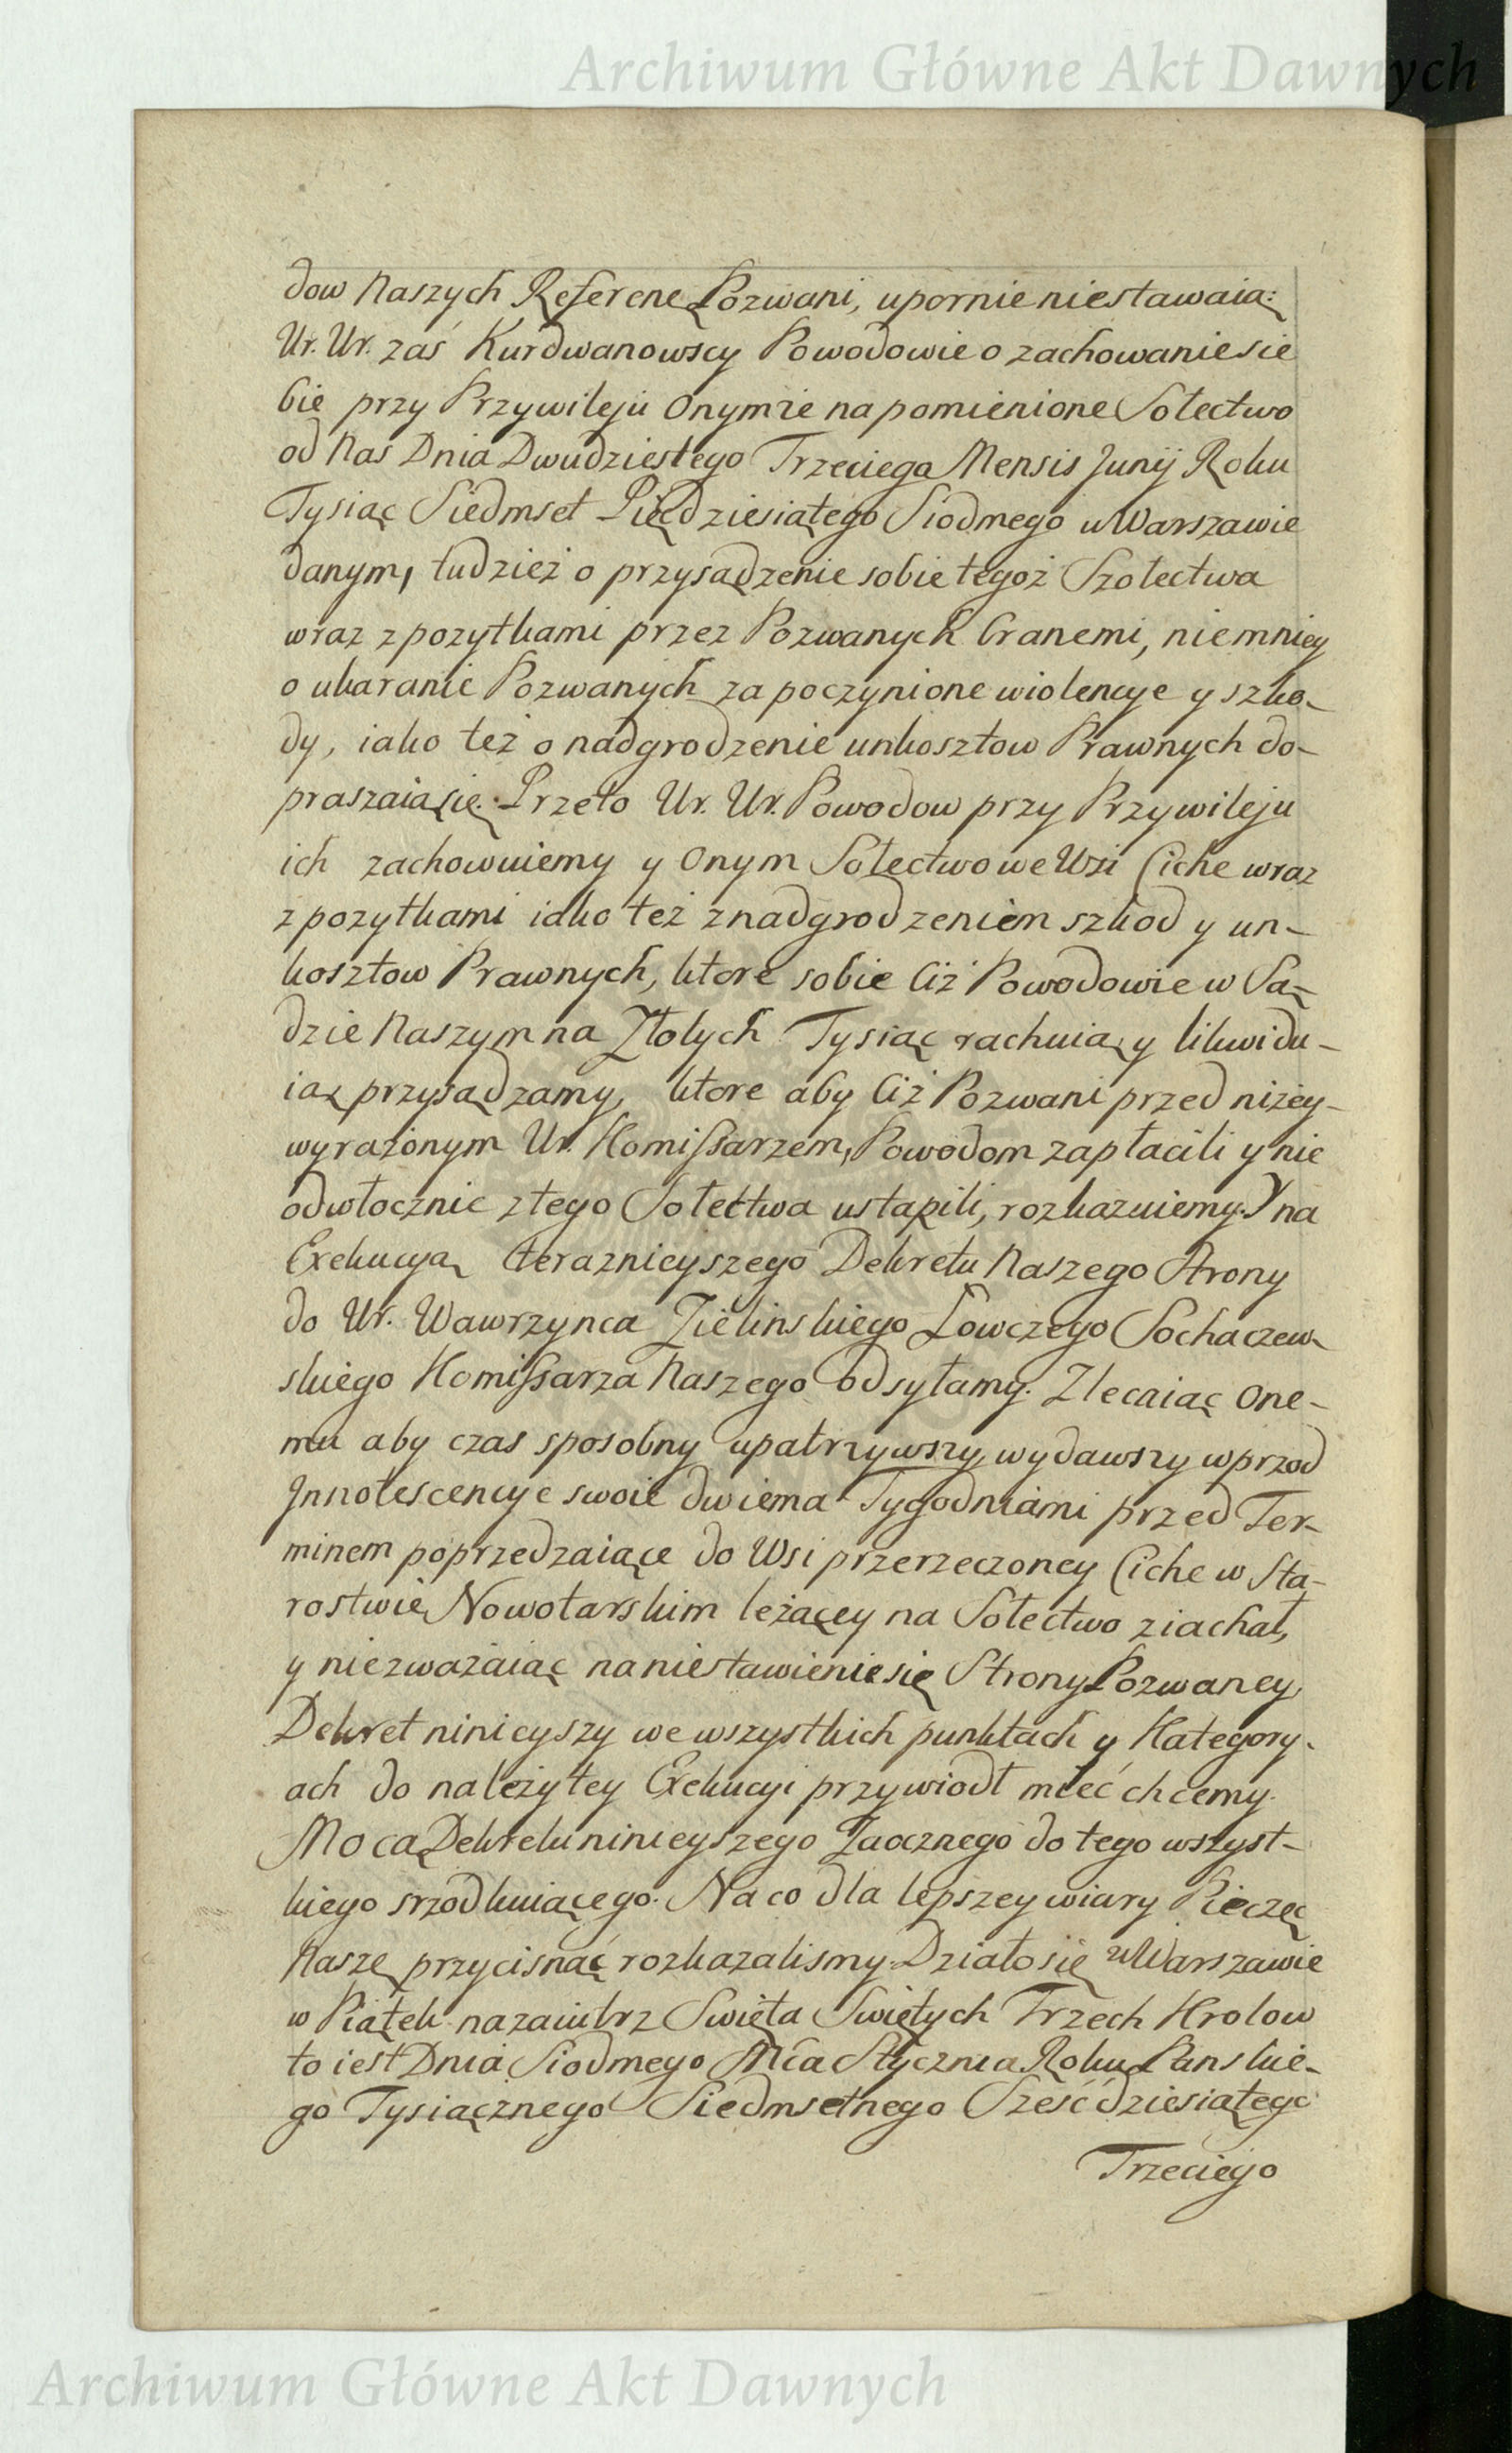 Archiwum Główne Akt Dawnych
dow Naszych Referenę Pozwani, upornie niestawaią:
Ur. Ur. zaś Kurdwanowscy Powodowie o zachowanie sie
bie przy Przywileju Onymze na pomienione Sołectwo
od Nas Dnia Dwudziestego Trzeciega Mensis Junij Roku
Tysiąc Siedmset Pięćdziesiątego Siodmego w Warszawie
danym, tudzież o przysądzenie sobie tegoż Szołectwa
wraz z pozytkami przez Pozwanych branemi, niemniey
o ukaranie Pozwanych za poczynione wiolencye y szko-
dy, iako też o nadgrodzenie unkosztow Prawnych do-
praszaią się. Przeto Ur. Ur. Powodow przy Przywileju
ich zachowuiemy y Onym Sołectwo we Wsi Ciche wraz
z pozytkami iako też z nadgrodzeniem szkod y un-
kosztow Prawnych, ktore sobie Ciż Powodowie w Są-
dzie Naszym na Złotych Tysiąc rachuią y likwidu-
ią przysądzamy, ktore aby Ciż Pozwani przed niżey-
wyrażonym Ur. Komissarzem, Powodom zapłacili y nie
odwłocznie z tego Sołectwa ustąpili, rozkazuiemy. Y na
Exekucyą teraznieyszego Dekretu Naszego Strony
do Ur. Wawrzynca Zielinskiego Łowczego Sochaczew-
skiego Komissarza Naszego odsyłamy. Zlecaiąc One-
mu aby czas sposobny upatrzywszy, wydawszy wprzod
Innotescencye swoie dwiema Tygodniami przed Ter-
minem poprzedzaiące do Wsi przerzeczoney Ciche w Sta-
rostwie Nowotarskim leżącey na Sołectwo ziachał,
y niezważaiąc na niestawienie się Strony Pozwaney,
Dekret ninieyszy we wszystkich punktach y Kategory-
ach do należytey Exekucyi przywiodł mieć chcemy.
Mocą Dekretu ninieyszego Zaocznego do tego wszyst-
kiego srzodkuiącego. Na co dla lepszey wiary Pieczęć
Naszę przycisnąć rozkazalismy. Działo się w Warszawie
w Piątek nazaiutrz Swięta Swiętych Trzech Krolow
to iest Dnia Siodmego Mca Stycznia Roku Panskie-
go Tysiącznego Siedmsetnego Sześćdziesiątego
Trzeciego
Archiwum Główne Akt Dawnych